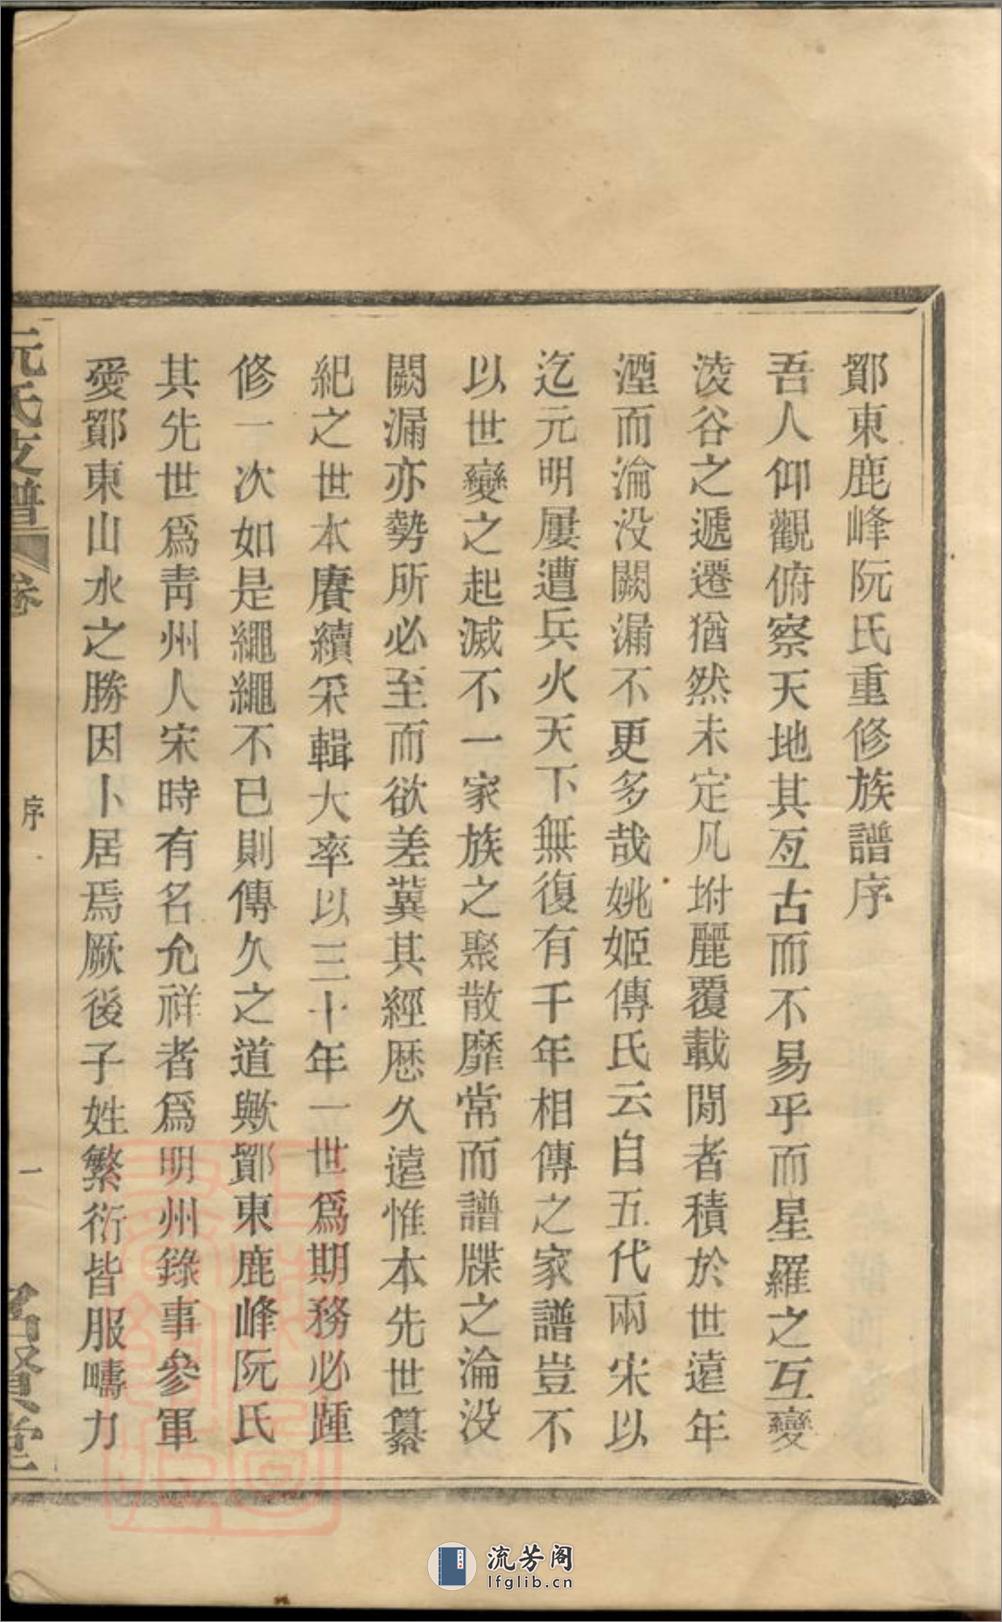 鄞東鹿峰阮氏重修族譜序
吾人仰觀俯察天地其亙古而不易乎而星羅之互變
淩谷之遞遷猶然未定凡坿麗覆載閒者積於世遠年
湮而淪没闕漏不更多哉姚姬傳氏云自五代兩宋以
迄元明屢遭兵火天下無復有千年相傳之家譜豈不
以世變之起滅不一家族之聚散靡常而譜牒之淪没
闕漏亦勢所必至而欲差冀其經歷久遠惟本先世纂
紀之世本賡續采輯大率以三十年一世爲期務必踵
修一次如是繩繩不已則傳久之道歟鄞東鹿峰阮氏
其先世爲靑州人宋時有名允祥者爲明州錄事參軍
愛鄞東山水之勝因卜居焉厥後子姓繁衍皆服疇力
阮氏支譜 卷 序 一 名賢堂
流芳阁
lfglib.cn